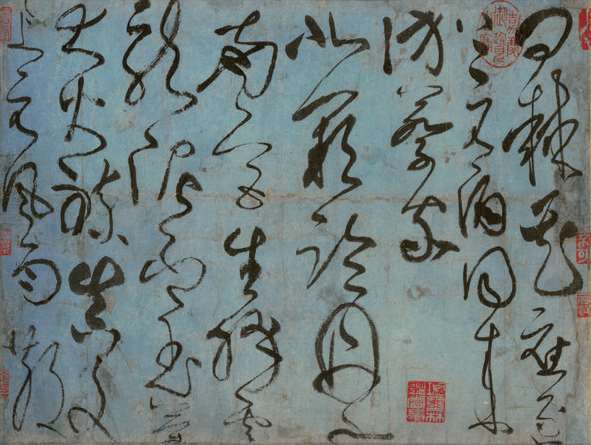 問棗花應逐
上元酒同來
訪蔡家
北闕臨丹水
南宮生絳雲
龍泥印玉簡
大火煉真文
上元風雨散